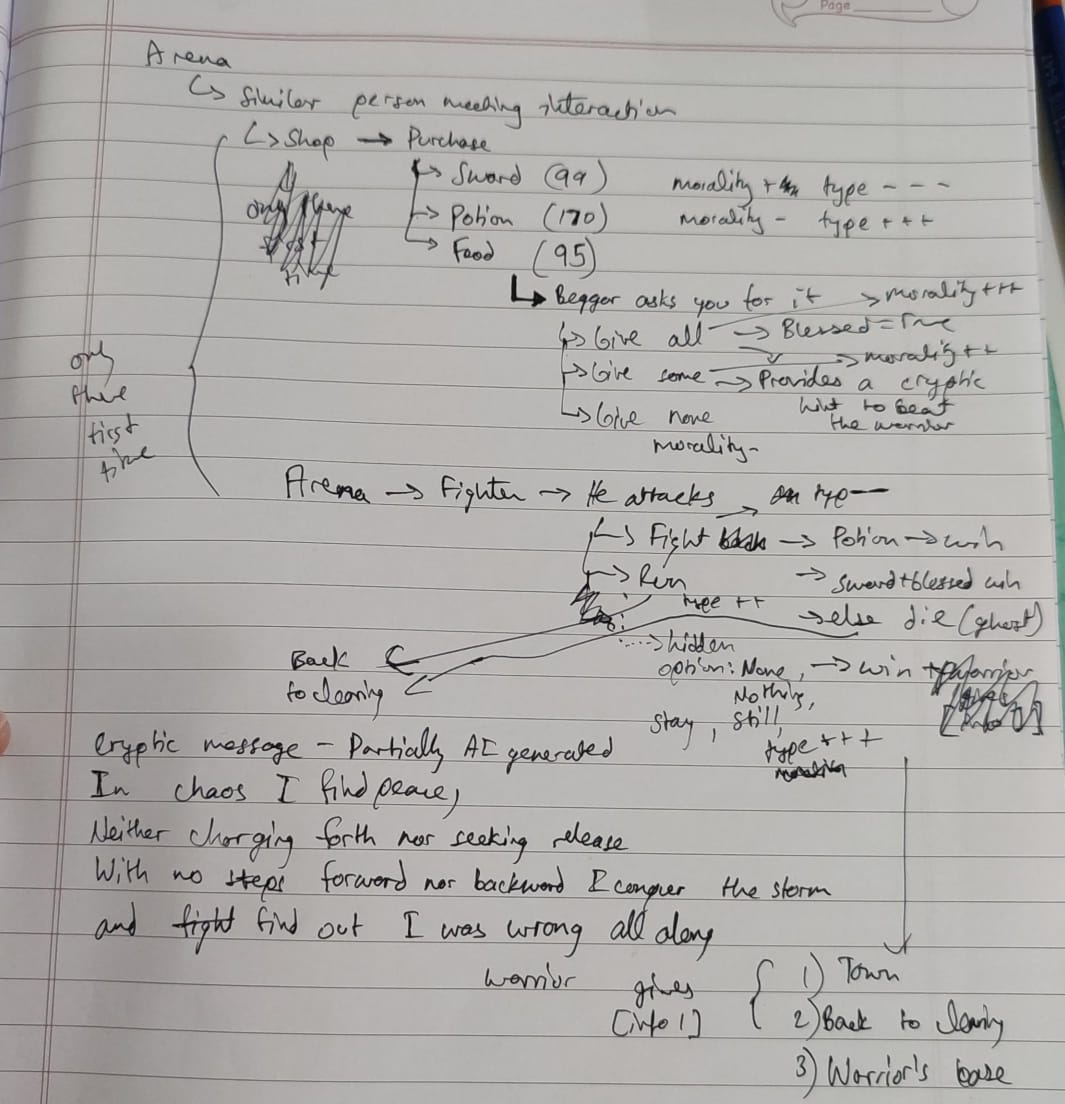 Page
Arena
↳ Similar person meeting interaction
↳ Shop → Purchase
→ Sword (99) morality + type - - -
→ Potion (170) morality - type + + +
→ Food (95)
↳ Beggar asks you for it → morality +++
→ Give all → Blessed = True
→ morality ++
→ Give some → Provides a cryptic
hint to beat
the warrior
→ Give none
morality -
only
there
first
time
Arena → Fighter → He attacks → type --
→ Fight → Potion → win
→ Run → sword + blessed win
type ++ → else die (ghost)
→ hidden
option: None, → win +
Nothing,
Stay, Still,
type +++
Back
to clearing
Cryptic message - Partially AI generated
In chaos I find peace,
Neither charging forth nor seeking release
With no steps forward nor backward I conquer the storm
and find out I was wrong all along
warrior gives
[info 1]
1) Town
2) Back to clearing
3) Warrior's base